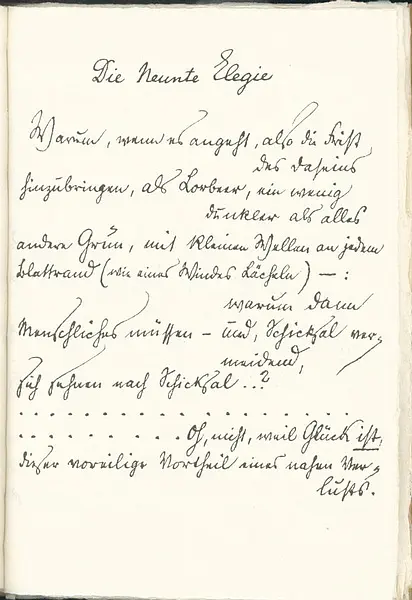 Die Neunte Elegie
Warum, wenn es angeht, also die Frist
des Daseins
hinzubringen, als Lorbeer, ein wenig
dunkler als alles
andere Grün, mit kleinen Wellen an jedem
Blattrand (wie eines Windes Lächeln) — :
warum dann
Menschliches müssen – und, Schicksal ver-
meidend,
sich sehnen nach Schicksal ..?
. . . . . . . . . . . . . . . . . .
. . . . . . . . . Oh, nicht, weil Glück ist,
dieser voreilige Vortheil eines nahen Ver-
lusts.